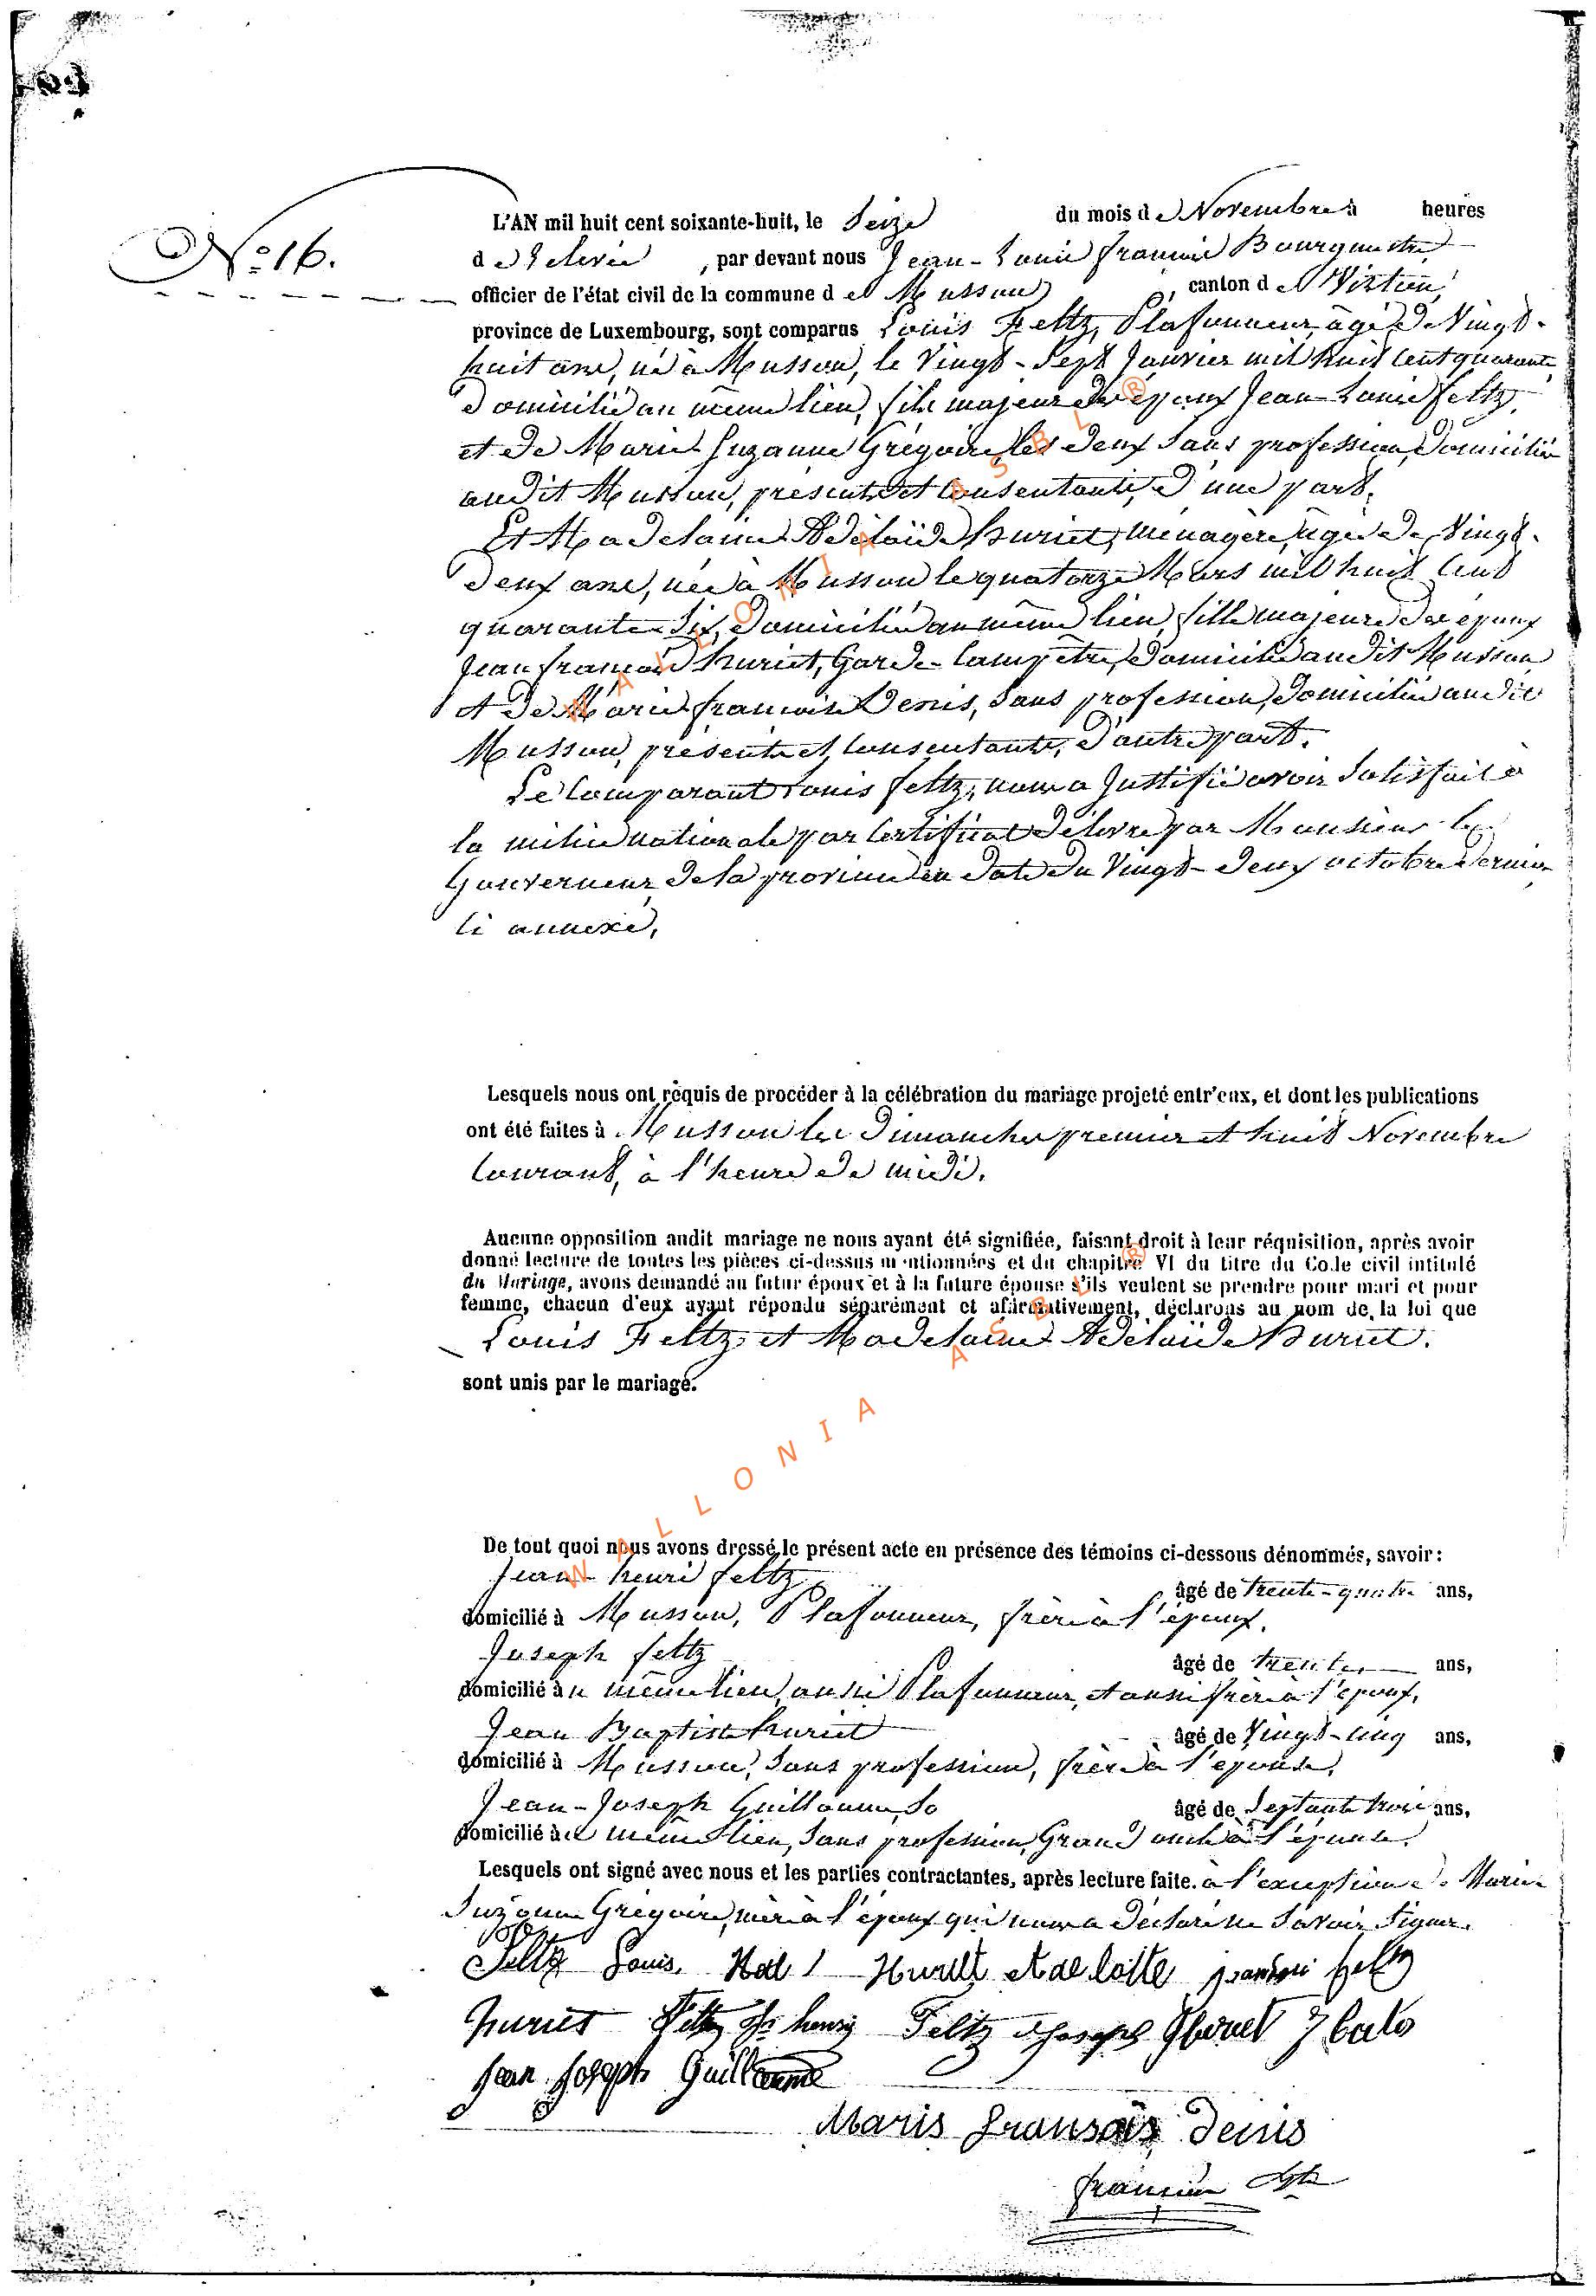 L'AN mil huit cent soixante-huit, le Seize du mois de Novembre à heures
N° 16.
de relevée, par devant nous Jean-Louis Bourgmestre
officier de l'état civil de la commune de Musson, canton de Virton,
province de Luxembourg, sont comparus Louis Feltz, Plafonneur, âgé de Vingt-
huit ans, né à Musson, le Vingt-Sept Janvier mil huit cent quarante
domicilié au même lieu, fils majeur des époux Jean Louis Feltz,
et de Marie Suzanne Grégoire, les deux Sans profession, domiciliés
audit Musson, présents et consentants, d'une part.
Et Madelaine Adélaïde Huriet, ménagère, âgée de Vingt-
deux ans, née à Musson le quatorze Mars mil huit cent
quarante Six, domiciliée au même lieu, fille majeure des époux
Jean françois huriet, Garde-Campêtre, domicilié audit Musson
et de Marie françoise Denis, Sans profession, domiciliée audit
Musson, présents et consentants, d'autre part.
Le Comparant Louis Feltz, nous a Justifié avoir Satisfait à
la milice nationale par Certificat délivré par Monsieur le
Gouverneur de la province en date du Vingt-deux octobre dernier
ci annexé.
Lesquels nous ont requis de procéder à la célébration du mariage projeté entr'eux, et dont les publications
ont été faites à Musson les Dimanches premier et huit Novembre
Courant, à l'heure de midi.
Aucune opposition audit mariage ne nous ayant été signifiée, faisant droit à leur réquisition, après avoir
donné lecture de toutes les pièces ci-dessus mentionnées et du chapitre VI du titre du Code civil intitulé
du Mariage, avons demandé au futur époux et à la future épouse s'ils veulent se prendre pour mari et pour
femme, chacun d'eux ayant répondu séparément et affirmativement, déclarons au nom de la loi que
Louis Feltz et Madelaine Adélaïde Huriet.
sont unis par le mariage.
De tout quoi nous avons dressé le présent acte en présence des témoins ci-dessous dénommés, savoir :
Jean-henri feltz, âgé de trente-quatre ans,
domicilié à Musson, Plafonneur, frère à l'époux.
Joseph feltz âgé de trente ans,
domicilié au même lieu, aussi Plafonneur, et aussi frère à l'époux.
Jean Baptiste huriet âgé de Vingt-cinq ans,
domicilié à Musson, Sans profession, frère à l'épouse.
Jean-Joseph Guillaume âgé de Septante trois ans,
domicilié au même lieu, Sans profession, Grand oncle à l'épouse.
Lesquels ont signé avec nous et les parties contractantes, après lecture faite. à l'exception de Marie
Suzanne Grégoire, mère à l'époux qui nous a déclaré ne Savoir Signer.
Feltz Louis. Huriet feltz
huriet Feltz henry Feltz Joseph
Jean Joseph Guillaume
Maris fransois Denis
WALLONIA ASBL ®
WALLONIA ASBL ®